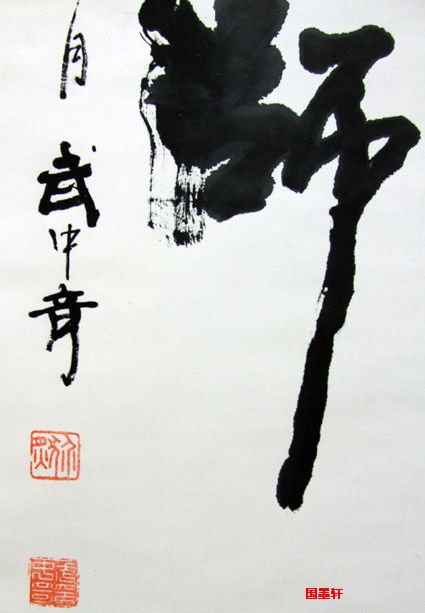 師
月 武中奇
国墨轩